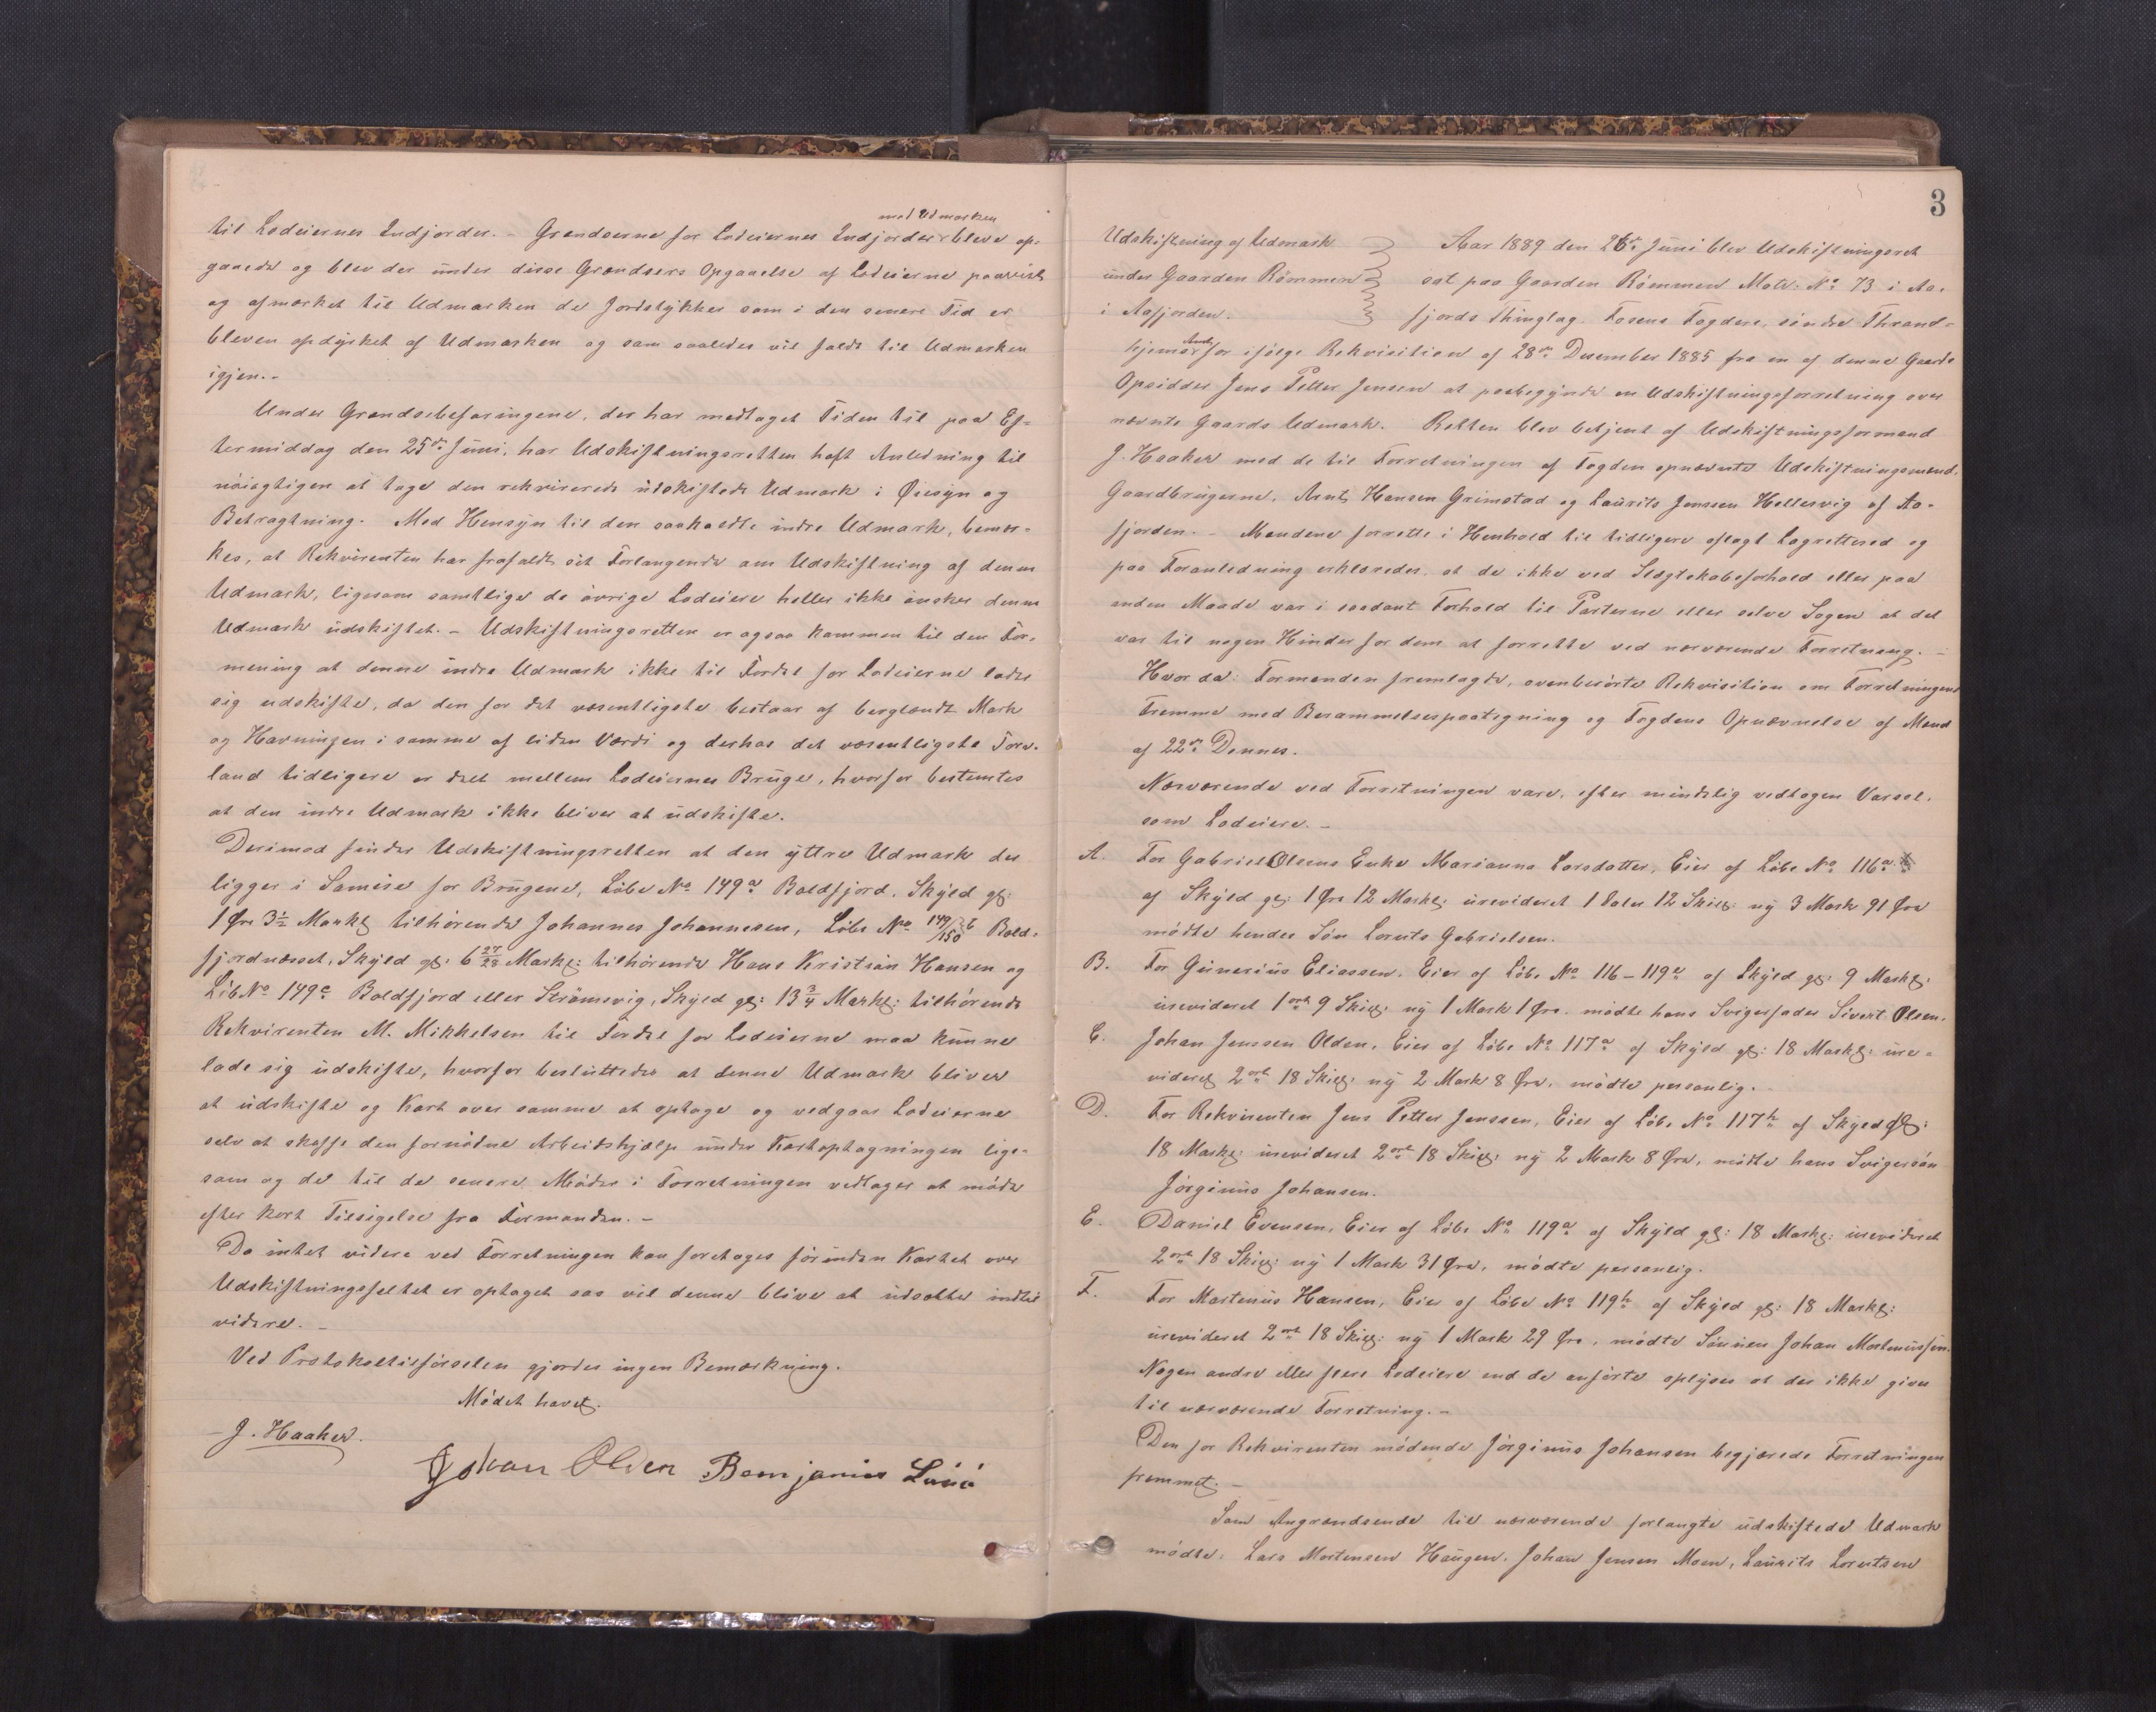 med Udmarken
til Lodeiernes Indjorder. - Grændserne for Lodeiernes Indjorder bleve op-
gaaede og blev der under disse Grændsers Opgaaelse af Lodeierne paavist
og afmærket til Udmarken de Jordstykker som i den senere Tid er
bleven opdyrket af Udmarken og som saaledes vil falde til Udmarken
igjen. -
Under Grændsebefaringene, der har medtaget Tiden til paa Ef-
termiddag den 25de Juni, har Udskiftningsretten haft Anledning til
nøiagtigen at tage den rekvirerede udskiftede Udmark i Øiesyn og
Betragtning. Med Hensyn til den saakaldte indre Udmark, bemær-
kes, at Rekvirenten har frafaldt sit Forlangende om Udskiftning af denne
Udmark, ligesom samtlige de øvrige Lodeiere heller ikke ønsker denne
Udmark udskiftet. - Udskiftningsretten er ogsaa kommen til den For-
mening at denne indre Udmark ikke til Fordel for Lodeierne lader
sig udskifte, da den for det væsentligste bestaar af berglændt Mark
og Havningen i samme af liden Værdi og derhos det væsentligste
land tidligere er delt mellem Lodeiernes Bruge, hvorfor bestemtes
at den indre Udmark ikke bliver at udskifte.
Derimod finder Udskiftningsretten at den yttre Udmark der
ligger i Sameie for Brugene, Løbe No 149a Boldfjord, Skyld gl:
1 Øre 3½ Markl tilhørende Johannes Johannesen, Løbe No 149/150 b Bold-
fjordnæsset, Skyld gl: 6 27/28 Markl: tilhørende Hans Kristian Hansen og
Løb No 149c Boldfjord eller Strømsvig, Skyld gl: 13 3/4 Markl: tilhørende
Rekvirenten M. Mikkelsen til Fordel for Lodeierne maa kunne
lade sig udskifte, hvorfor besluttedes at denne Udmark bliver
at udskifte og Kart over samme at optage og vedgaar Lodeierne
selv at skaffe den fornødne Arbeidshjælp under Kartoptagningen lige-
som og de til de senere Møder i Forretningen vedtager at møde
efter kort Tilsigelse fra Formanden. -
Da intet videre ved Forretningen kan foretages førinden Kartet over
Udskiftningsfeltet er optaget saa vil denne blive at udsætte indtil
videre. -
Ved Protokoltilførselen gjordes ingen Bemærkning.
Mødet hævet.
J. Haaker.
Johan Olden Bemjamin
3
Udskiftning af Udmark
under Gaarden Rømmen
i Aafjorden.
Aar 1889 den 26de Juni blev Udskiftningsret
sat paa Gaarden Rømmen Matr: No 73 i Aa-
fjords Thinglag. Fosens Fogderi, søndre Thrond-
hjems Amt for ifølge Rekvisition af 28de Desember 1885 fra en af denne Gaards
Opsidder Jens Petter Jensen at paabegynde en Udskiftningsforretning over
nævnte Gaards Udmark. Retten blev betjent af Udskiftningsformand
J. Haaker med de til Forretningen af Fogden opnævnte Udskiftningsmænd,
Gaardbrugerne, Arnt Hansen Grimstad og Laurits Jenssen Hellesvig af Aa-
fjorden. - Mændene forrette i Henhold til tidligere aflagt Lagrettesed og
paa Foranledning erklæredes at de ikke ved Slægtskabsforhold eller paa
anden Maade var i saadant Forhold til Parterne eller selve Sagen at det
var til nogen Hinder for dem at forrette ved nærværende Forretning. -
Hvor da: Formanden fremlagde, ovenberørte Rekvisition om Forretningens
Fremme med Berammelsespaategning og Fogdens Opnævnelse af Mænd
af 22de Dennes.
Nærværende ved Forretningen vare, efter mindelig vedtagen Varsel,
som Lodeiere. -
A. For Gabriel Olsens Enke Marianna Larsdatter, Eier af Løbe No 116a
af Skyld gl: 1 Øre 12 Markl: urevideret 1 Daler 12 Skill: ny 3 Mark 91 Øre
mødte hendes Søn Lorents Gabrielsen.
B. For Gunerius Eliassen, Eier af Løbe No 116-119c af Skyld gl: 9 Markl:
urevideret 1 ort 9 Skill: ny 1 Mark 1 Øre. mødte hans Svigerfader Sivert Olsen.
C. Johan Jenssen Olden, Eier af Løbe No 117a af Skyld gl: 18 Markl: ure-
videret 2 ort 18 Skill: ny 2 Mark 8 Øre, mødte personlig.
D. For Rekvirenten Jens Petter Jenssen, Eier af Løbe No 117b af Skyld gl:
18 Markl: urevideret 2 ort 18 Skill: ny 2 Mark 8 Øre, mødte hans Svigersøn
Jørginus Johansen.
E. Daniel Evensen, Eier af Løbe No 119a af Skyld gl: 18 Markl: urevideret
2 ort 18 Skill: ny 1 Mark 31 Øre, mødte personlig.
F. For Martinus Hansen, Eier af Løbe No 119b af Skyld gl: 18 Markl:
urevideret 2 ort 18 Skill: ny 1 Mark 29 Øre, mødte Sønnen Johan Martinussen.
Nogen andre eller flere Lodeiere end de anførte oplyses at der ikke gives
til nærværende Forretning. -
Den for Rekvirenten mødende Jørginus Johansen begjærede Forretningen
fremmet. -
Som Angrændsende til nærværende forlangte udskiftede Udmark
mødte: Lars Mortensen Haugen, Johan Jensen Moen, Laurits Lorentsen